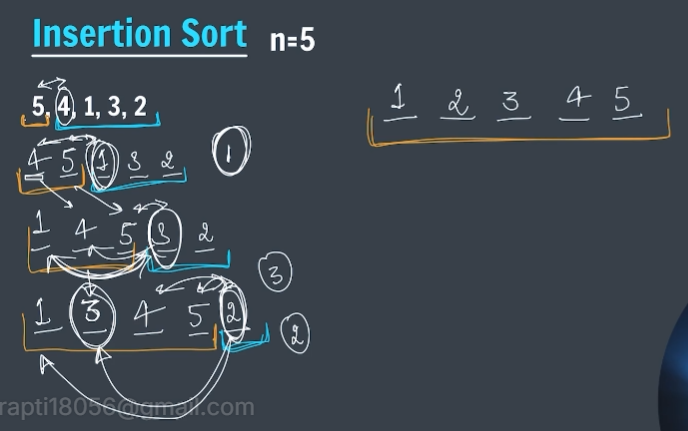 Insertion Sort n=5
5, 4, 1, 3, 2
1 2 3 4 5
4 5 1 3 2
1
1 4 5 3 2
3
1 3 4 5 2
2
rapti18056@gmail.com